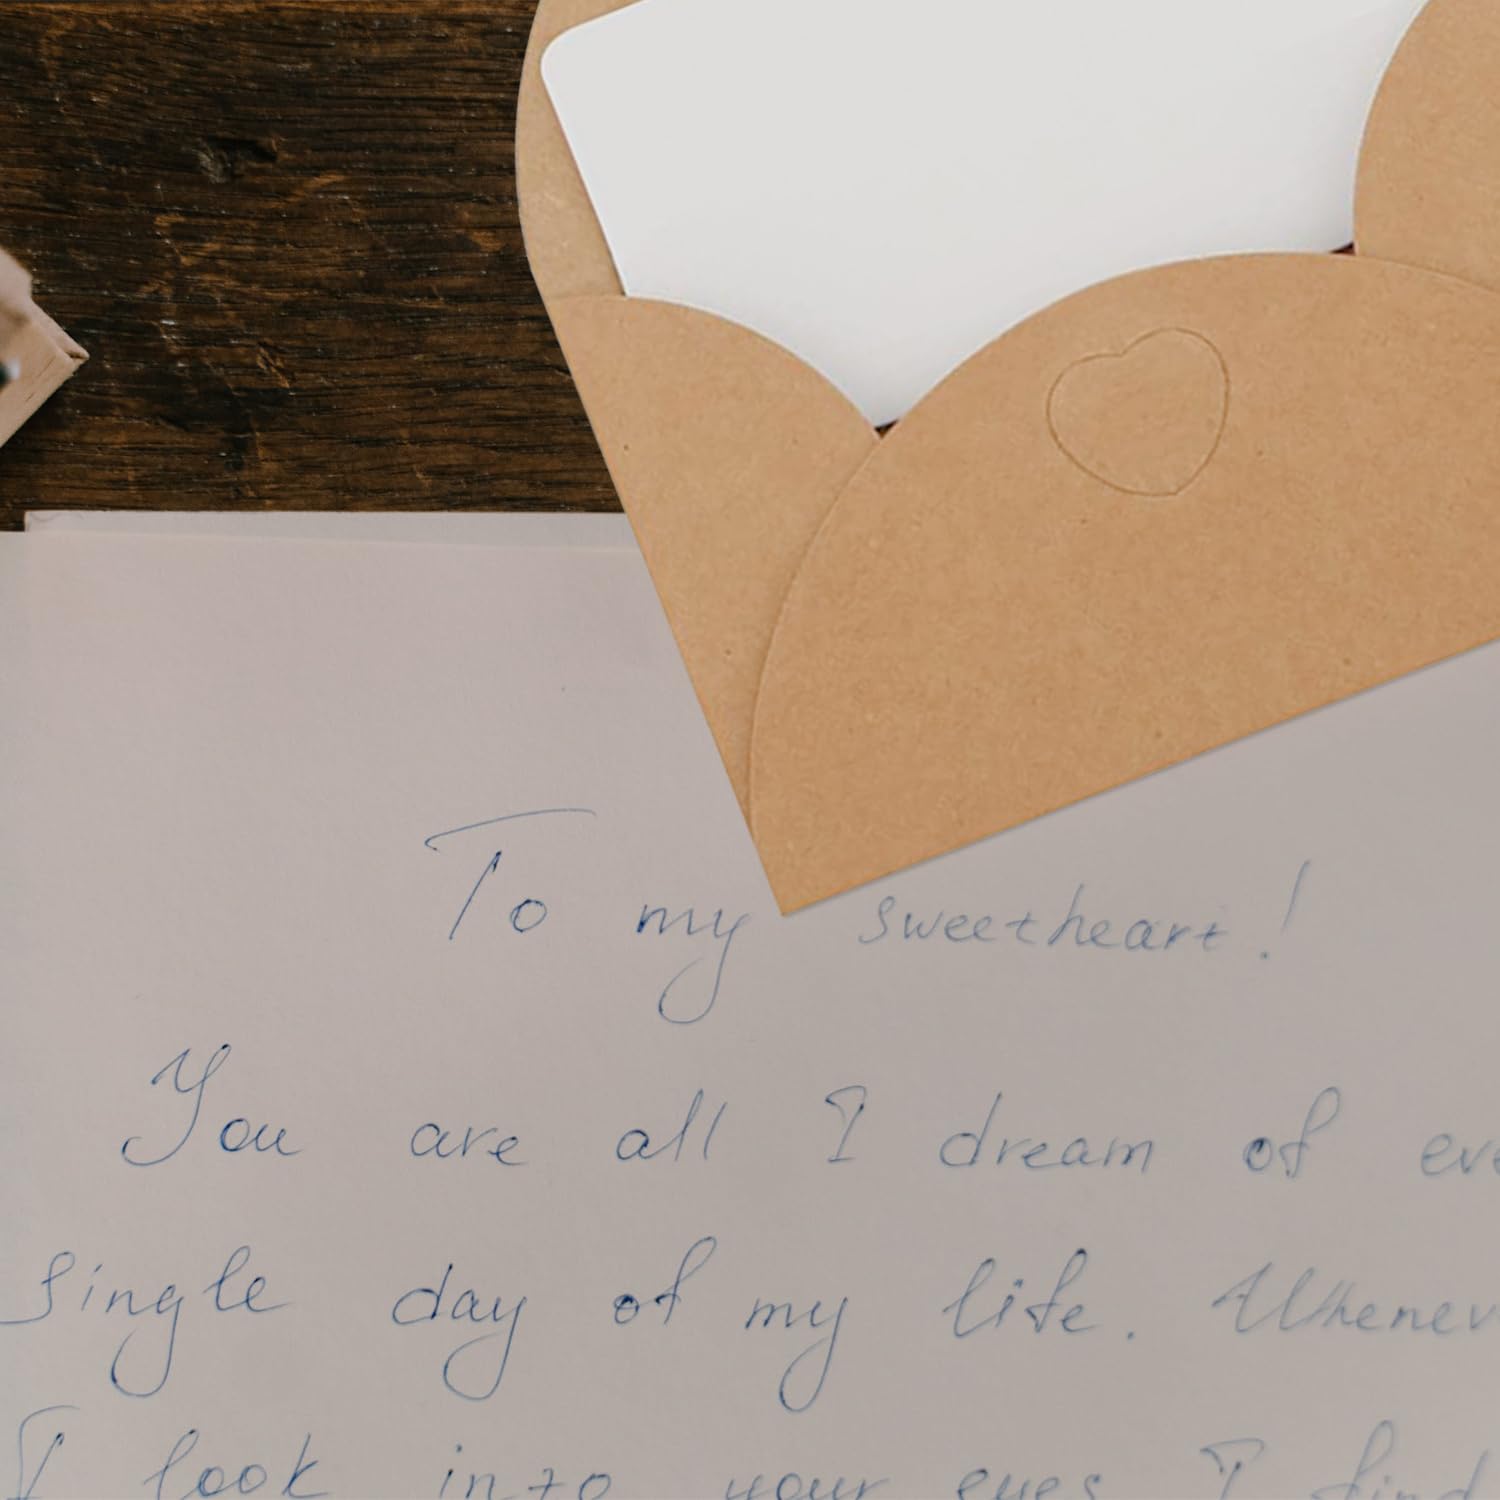 To my sweetheart!
You are all I dream of eve
single day of my life. Whenev
I look into your eyes I find